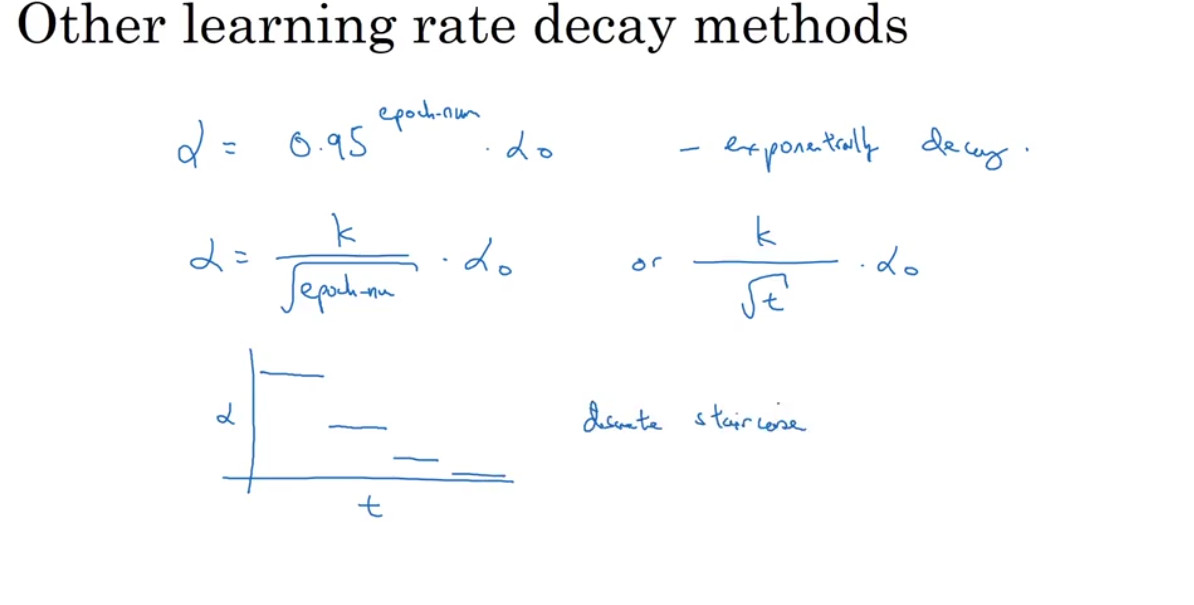 Other learning rate decay methods
α = 0.95^epoch-num · α₀ – exponentially decay.
α = k/√epoch-nu · α₀ or k/√t · α₀
α
discrete staircase
t